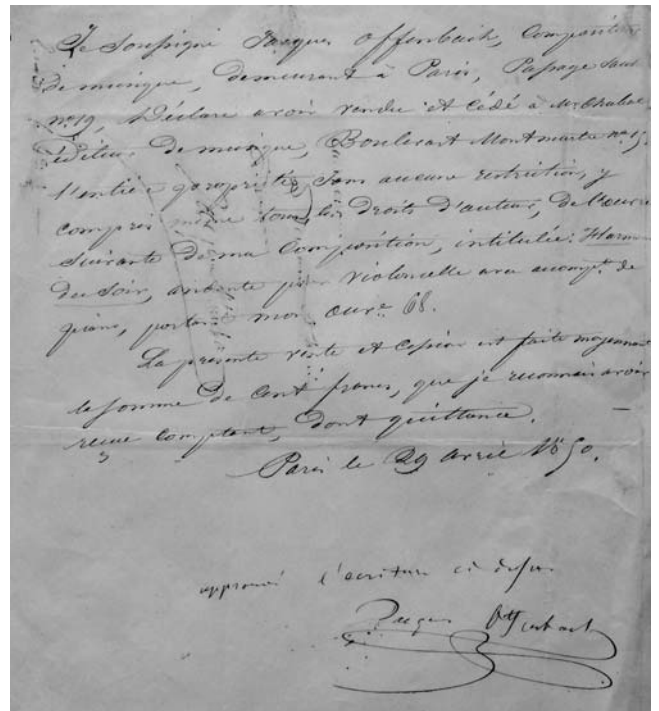 Je Soussigné Jacques Offenbach, Compositeur
de musique, demeurant à Paris, Passage Saul
n° 19, Déclare avoir vendu et cédé à Mr Chabal
éditeur de musique, Boulevart Montmartre n° 15
l'entière propriété, sans aucune restriction, y
compris même tous les droits d'auteur, de l'œuvre
suivante de ma Composition, intitulée: Harmo
du Soir, andante pour violoncelle avec accompt. de
piano, portant mon œuvre 68.
La présente vente et cession est faite moyennant
la somme de Cent francs, que je reconnais avoir
reçue comptant, dont quittance.
Paris le 29 avril 1850.
approuvé l'écriture ci dessus
Jacques Offenbach